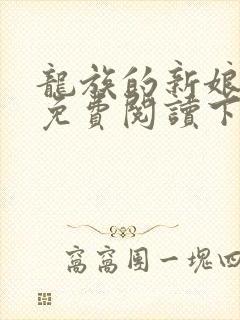 龍族的新娘
免費閱讀下
窩窩團一塊四